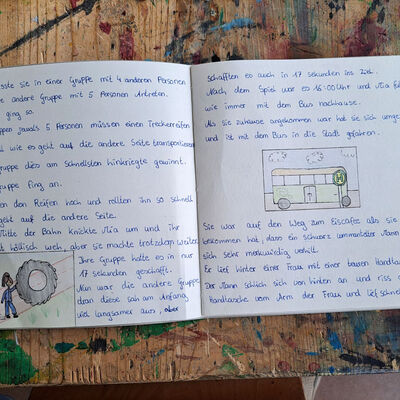 sste sie in einer Gruppe mit 4 anderen Personen
e andere Gruppe mit 5 Personen Antreten.
ging so.
ppen jewals 5 Personen müssen einen Treckerreifen
l wie es geht auf die andere Seite transportieren
ruppe dies am Schnellsten hinkriegte gewinnt.
ruppe fing an.
en den Reifen hoch und rollten ihn so schnell
geht auf die andere Seite.
Mitte der Bahn knickte Mia um und ihr
t höllisch weh, aber sie machte trotzdem weiter.
Ihre Gruppe hatte es in nur
17 sekunden geschafft.
Nun war die andere Gruppe
dran diese sah am Anfang
viel langsamer aus, aber
schafften es auch in 17 sekunden ins Ziel.
Nach dem Spiel war es 16:00 Uhr und Mia
wie immer mit dem Bus nachhause.
Als sie zuhause angekommen war hat sie sich
und ist mit dem Bus in die Stadt gefahren.
H
Sie war auf den Weg zum Eiscafe als sie
bekommen hat, dass ein schwarz Mann
sich sehr merkwürdig verhilt.
Er lief hinter einer Frau mit einer teuren
Der Mann schlich sich von hinten an und riss
Handtasche vom Arm der Frau und lief